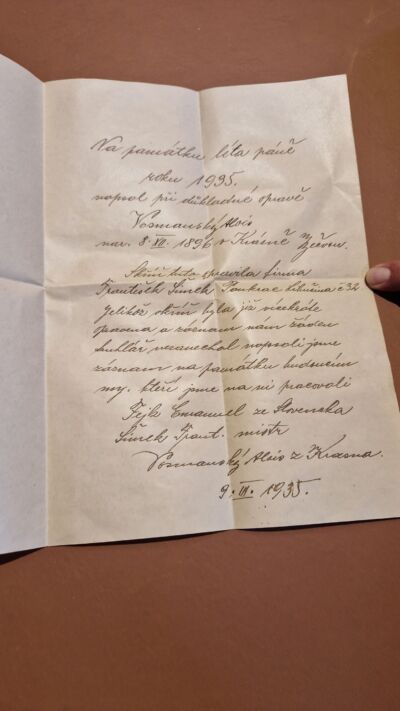 Na památku léta páně
roku 1935.
napsal při důkladné opravě
Vosmanský Alois
nar. 8. VII. 1896 v Krásně
Skříň tuto opravila firma
František Šimek Pankrac č 32
jelikož skříň byla již vícekráte
opravena a záznam nám žáden
truhlář nezanechal napsali jsme
záznam na památku budoucím
my, kteří jsme na ní pracovali
Fejk Emanuel ze Slovenska
Šimek Frant. mistr
Vosmanský Alois z Krásna.
9. III. 1935.